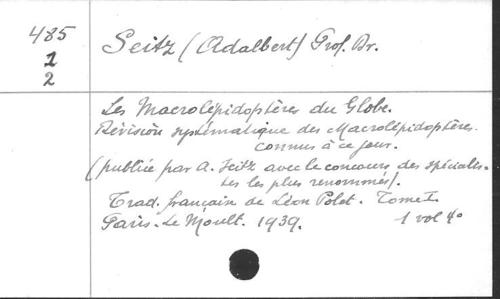 485
1
2
Seitz (Adalbert) Prof. Dr.
Les Macrolépidoptères du Globe.
Révision systématique des Macrolépidoptères
connus à ce jour.
(publiée par A. Seitz avec le concours des spécialis-
tes les plus renommés).
Trad. française de Léon Polet. Tome I.
Paris. Le Moult. 1939. 1 vol 4°